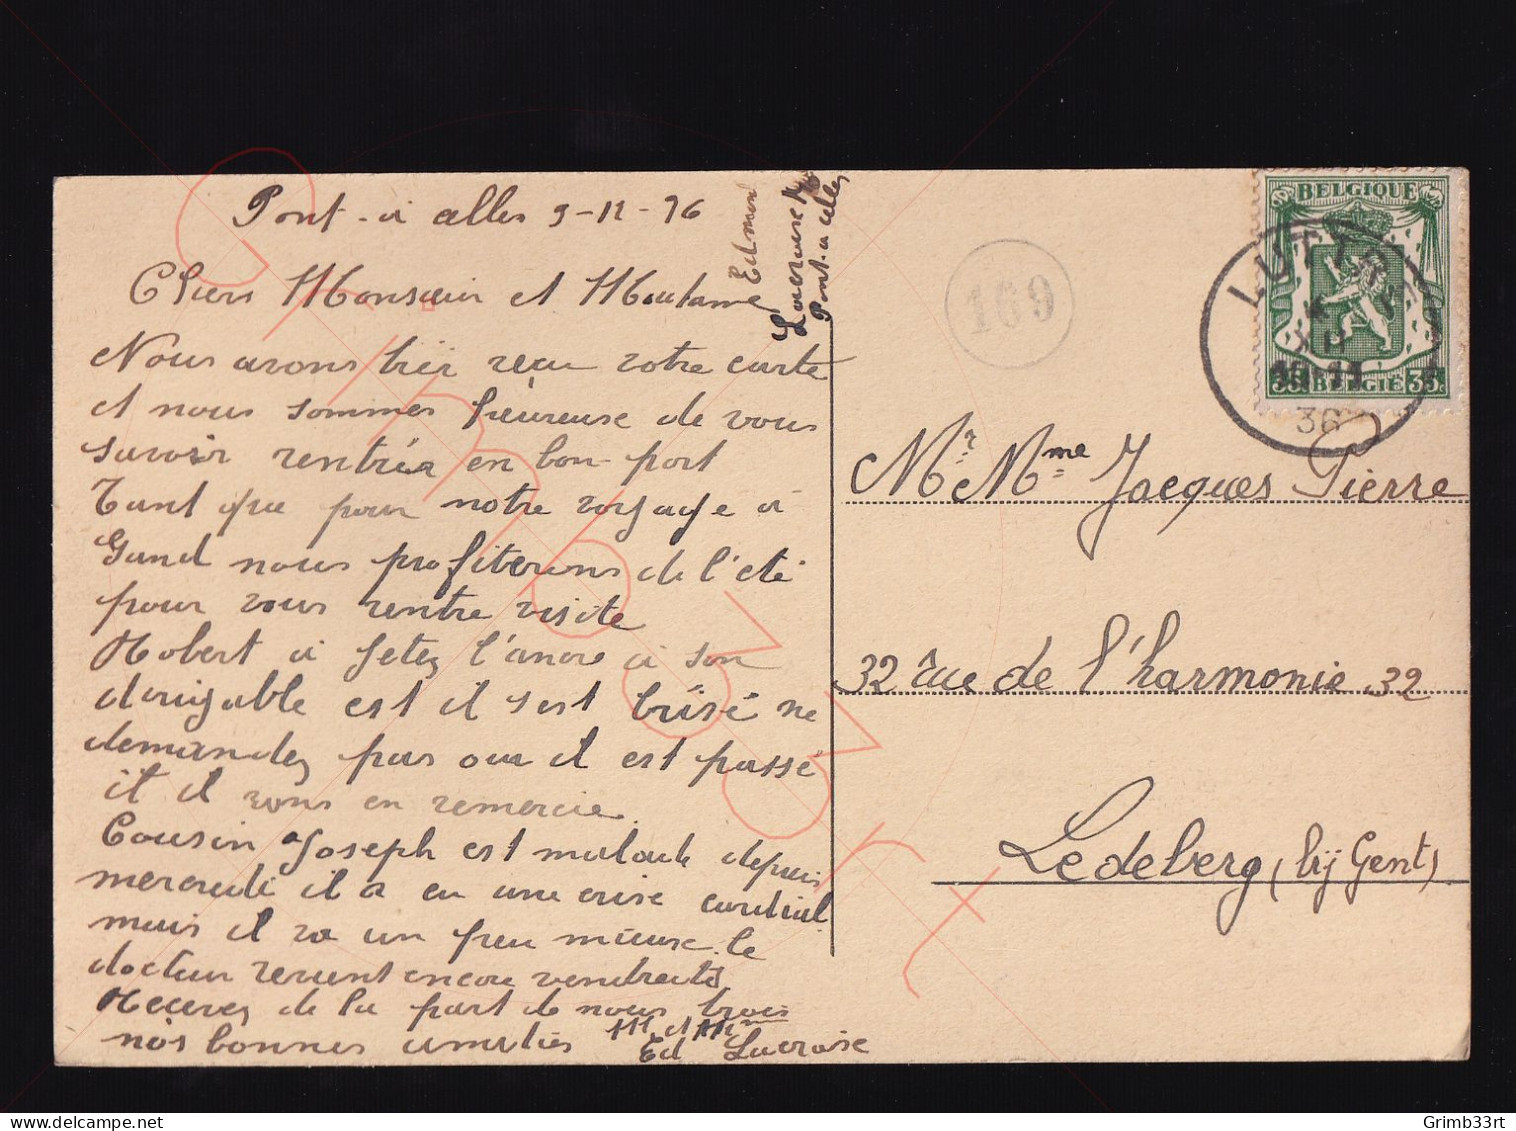 Pont-à celles 9-12-36
Edmond
Lacroix
Pont-à celles
Chers Monsieur et Madame
Nous avons hier reçu votre carte
et nous sommes heureuse de vous
savoir rentrés en bon port
Tant que pour notre voyage à
Gand nous profiterons de l'été
pour vous rentre visite
Robert a fetez l'ancre a son
est il s'est brisé ne
demandez pas ou il est passé
it il vous en remercie.
Cousin Joseph est malade depuis
mercredi il a eu une crise cardial
mais il va un peu mieux. le
docteur revient encore vendredi
Recevez de la part de nous trois
nos bonnes amitiés M. et Mme
Ed
169
BELGIQUE
35c BELGIË 35c
LUTTRE
36
Mr. Mme Jacques Pierre
32 rue de l'harmonie 32
Ledeberg (bij Gent)
Grimb33rt
delcampe.net
Grimb33rt